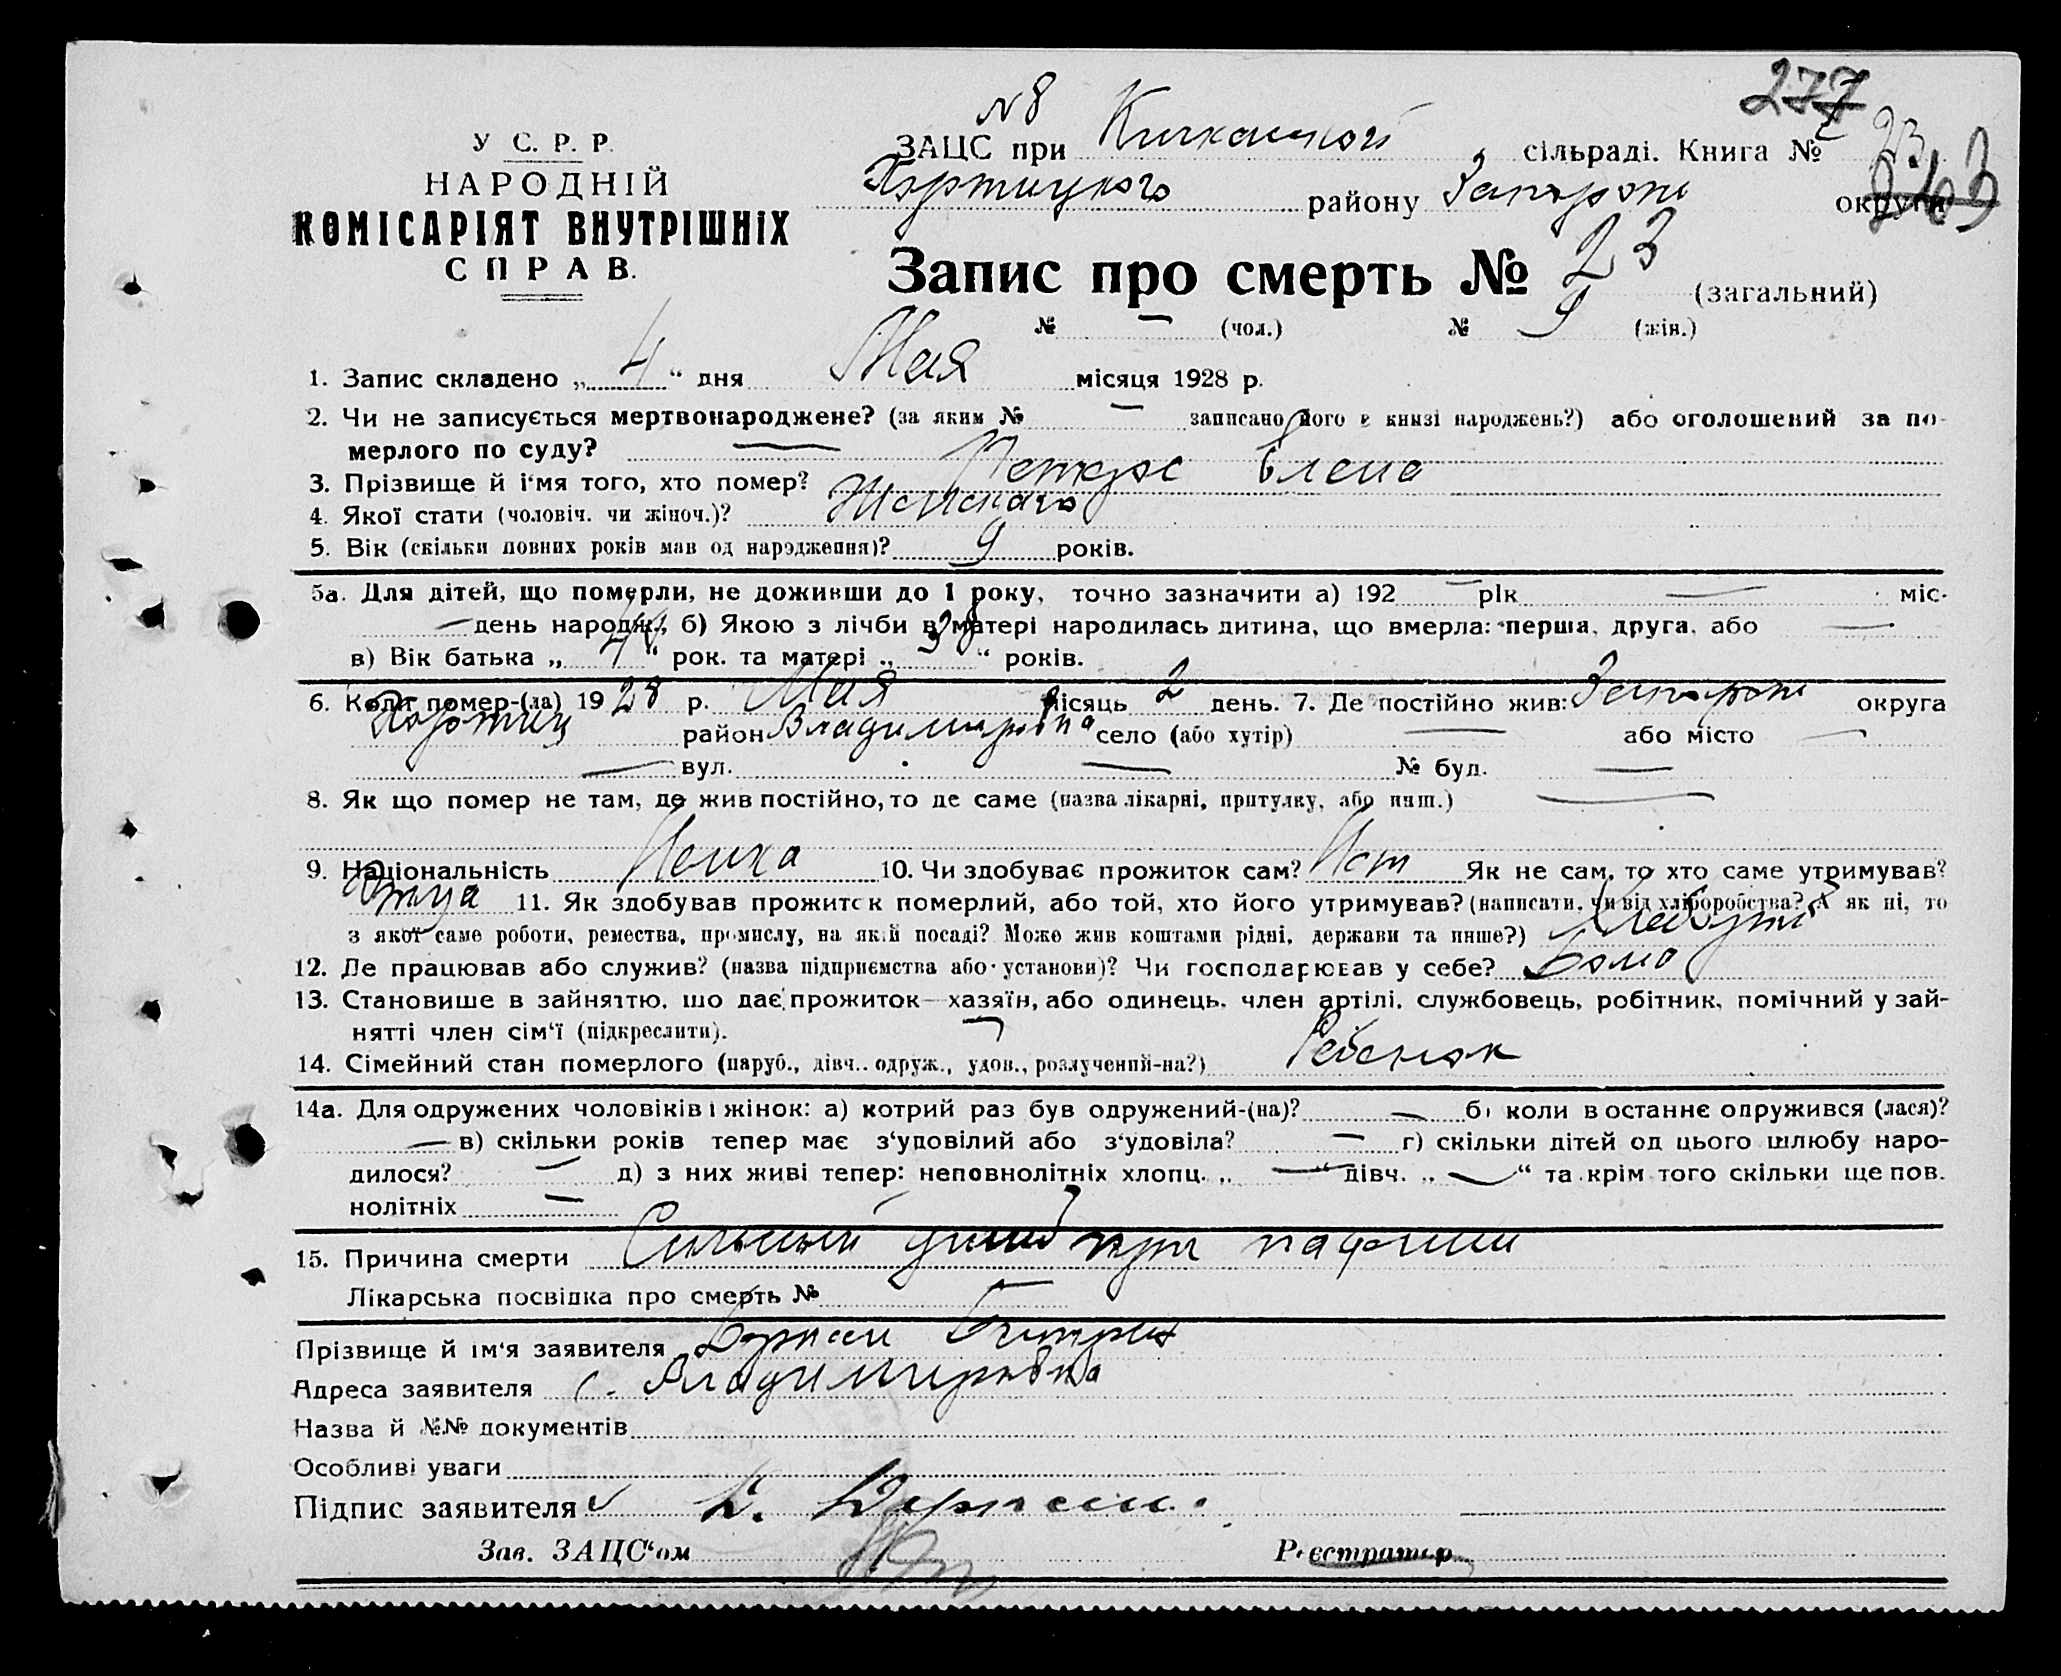 277
№ 8
У С. Р. Р.
НАРОДНІЙ
КОМІСАРІЯТ ВНУТРІШНІХ
СПРАВ.
ЗАЦС при Кичкасской сільраді. Книга № 23
Хортицкого району Запорож округи 263
Запис про смерть № 23 (загальний)
№ — (чол.) № 9 (жін.)
1. Запис складено „ 4 “ дня Мая місяця 1928 р.
2. Чи не записується мертвонароджене? (за яким № — записано його в книзі народжень?) або оголошений за по-
мерлого по суду? —
3. Прізвище й і‘мя того, хто помер? Петерс Елена
4. Якої стати (чоловіч. чи жіноч.)? Женского
5. Вік (скільки повних років мав од народження)? 9 років.
5а. Для дітей, що померли, не доживши до 1 року, точно зазначити а) 192 — рік — міс.
— день народж., б) Якою з лічби в матері народилась дитина, що вмерла: перша, друга, або —
в) Вік батька „ 44 “ рок. та матері „ 38 “ років.
6. Коли помер-(ла) 1928 р. Мая місяць 2 день. 7. Де постійно жив: Запорож округа
Хортиц район Владимировка село (або хутір) — або місто —
— вул. — № буд. —
8. Як що помер не там, де жив постійно, то де саме (назва лікарні, притулку, або инш.) —
9. Національність Немка 10. Чи здобуває прожиток сам? Нет Як не сам, то хто саме утримував?
Отца 11. Як здобував прожиток померлий, або той, хто його утримував? (написати, чи від хліборобства? А як ні, то
з якої саме роботи, ремества, промислу, на якій посаді? Може жив коштами рідні, держави та инше?)
12. Де працював або служив? (назва підприємства або установи)? Чи господарював у себе? Дома
13. Становище в зайняттю, що дає прожиток—хазяїн, або одинець, член артілі, службовець, робітник, помічний у зай-
нятті член сім‘ї (підкреслити).
14. Сімейний стан померлого (паруб., дівч.. одруж., удов., розлучений-на?) Ребенок
14а. Для одружених чоловіків і жінок: а) котрий раз був одружений-(на)? — б) коли в останнє одружився (лася)?
— в) скільки років тепер має з‘удовілий або з‘удовіла? — г) скільки дітей од цього шлюбу наро-
дилося? — д) з них живі тепер: неповнолітніх хлопц. „ — “ дівч. „ — “ та крім того скільки ще пов.
нолітніх —
15. Причина смерти Сильный ушиб при падении
Лікарська посвідка про смерть №
Прізвище й ім‘я заявителя
Адреса заявителя с. Владимировка
Назва й №№ документів
Особливі уваги
Підпис заявителя
Зав. ЗАЦС‘ом Реєстратор